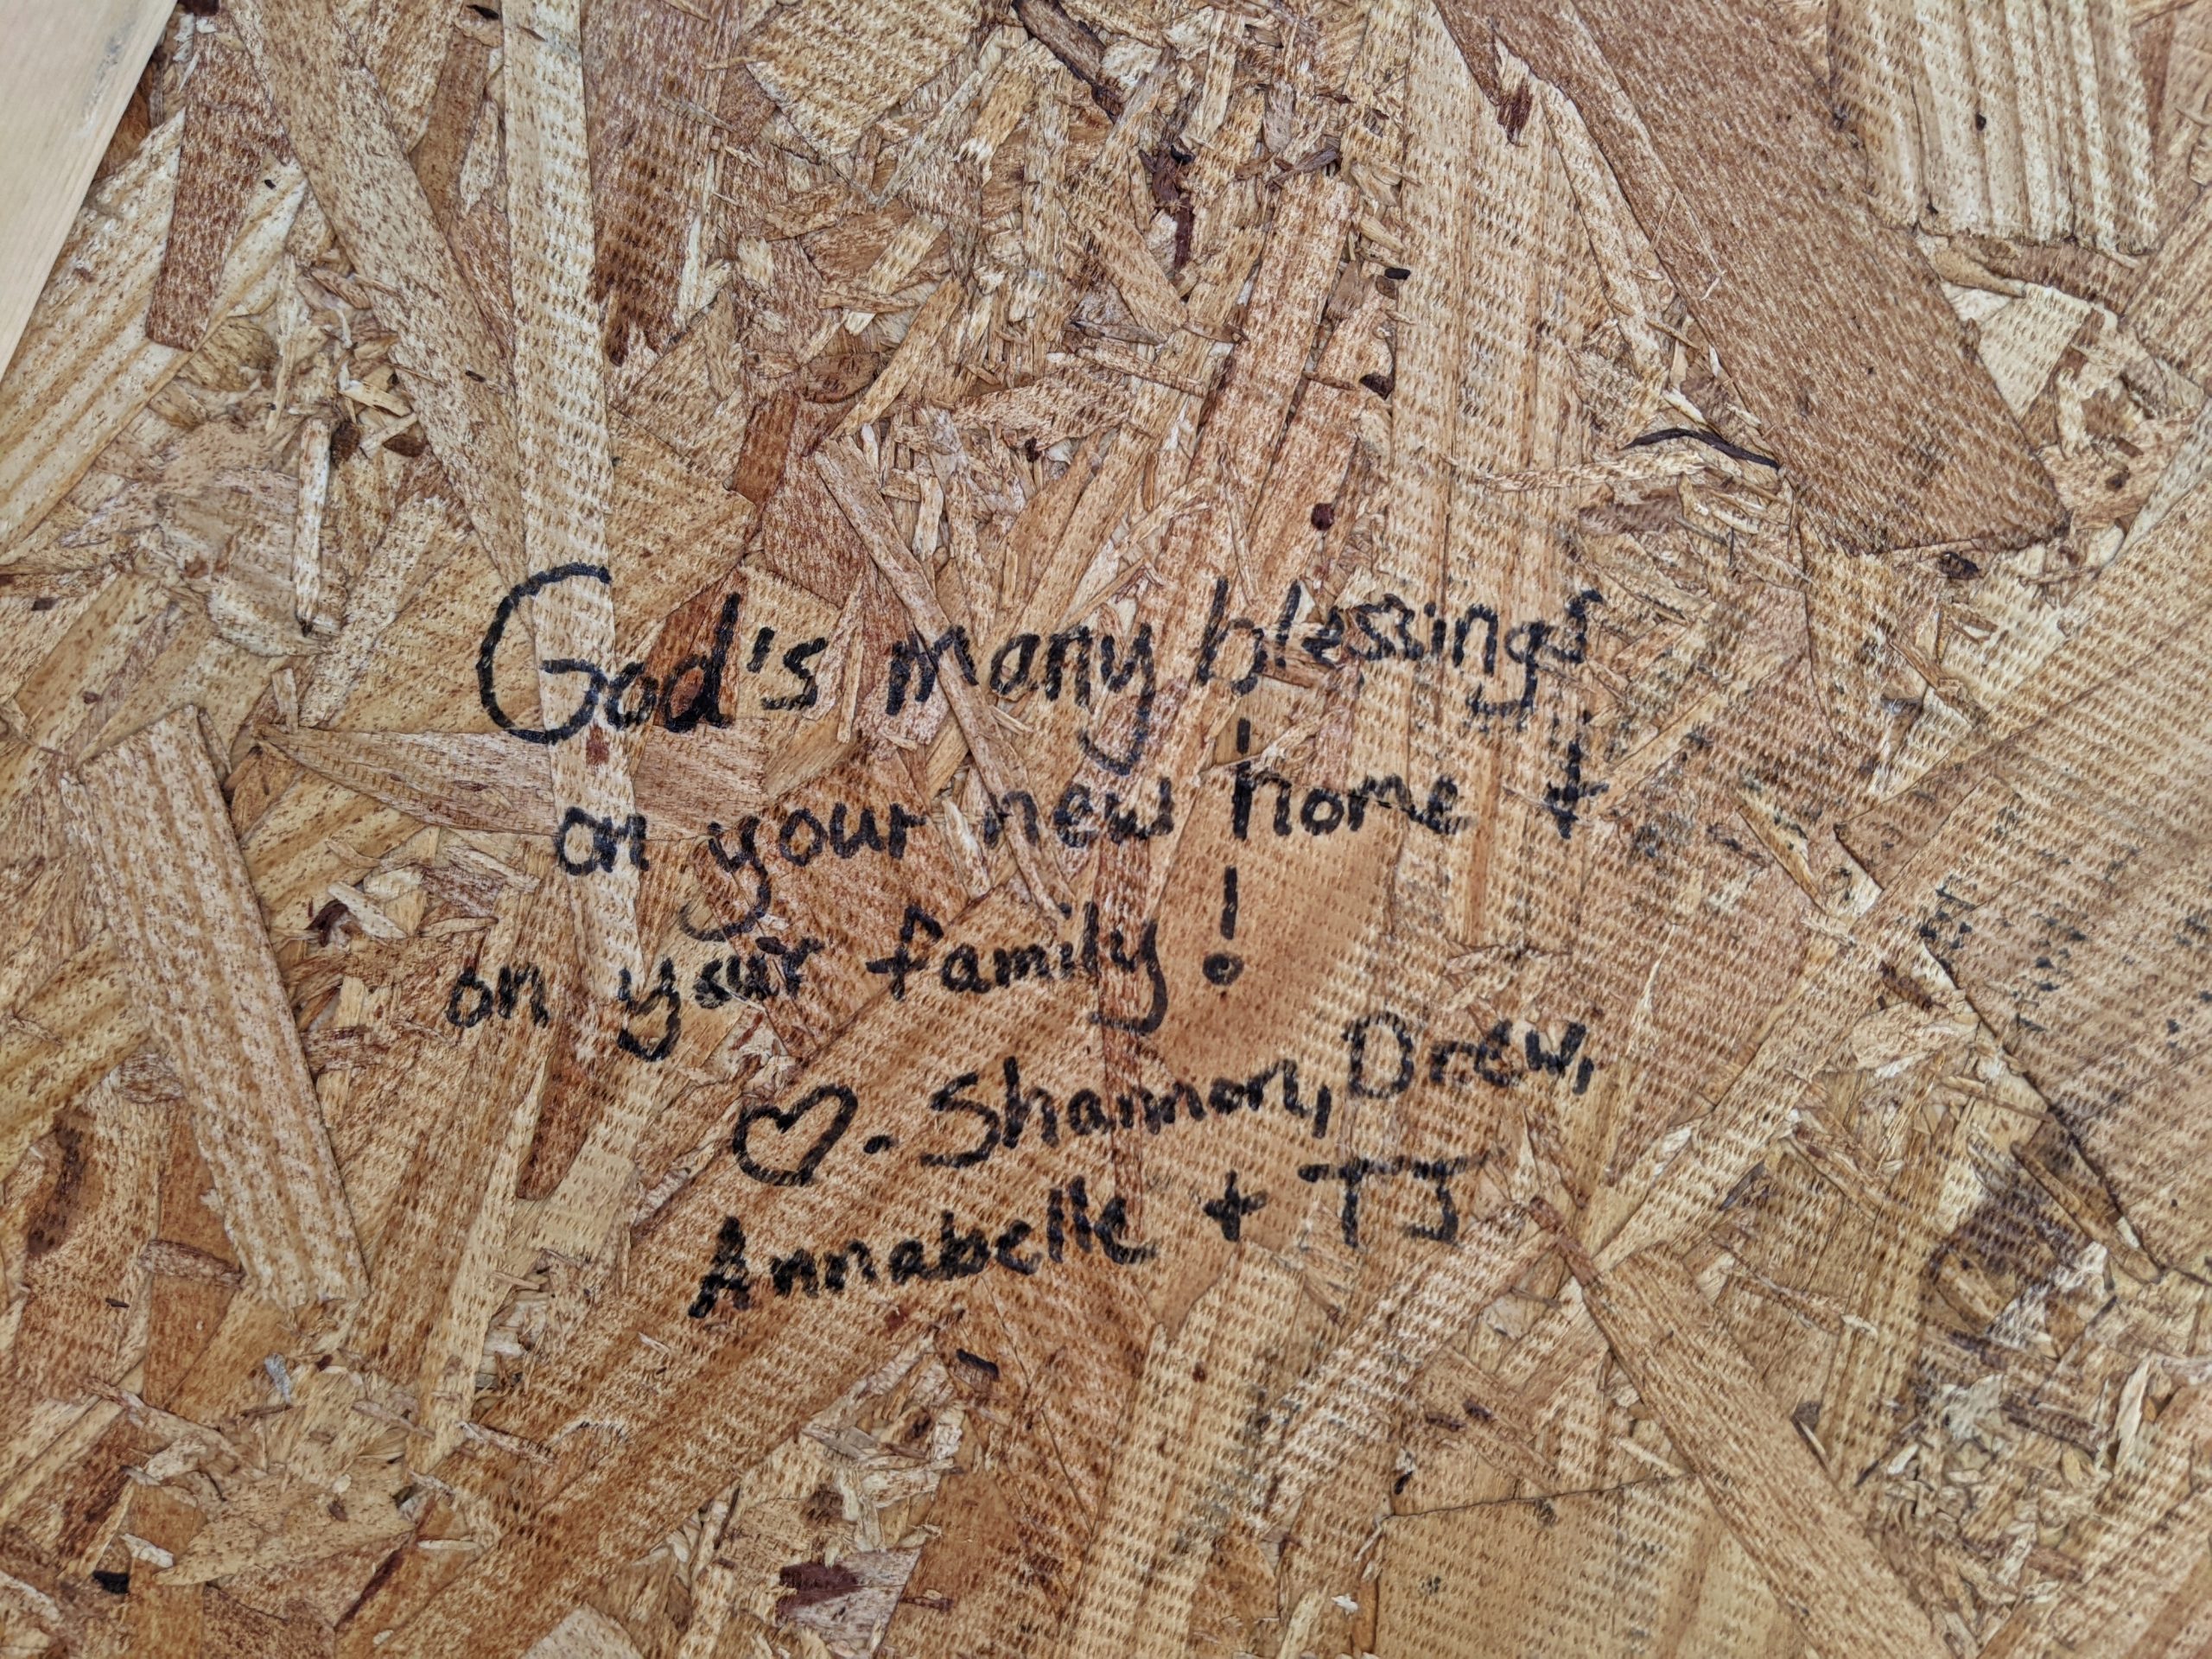 God's many blessings
on your new home +
on your family!
♡ - Shannon, Drew,
Annabelle + TJ